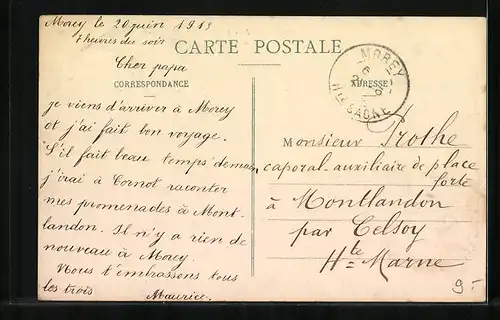 Morey le 20 juin 1913
7 heures du soir
CARTE POSTALE
Cher papa
CORRESPONDANCE
je viens d'arriver à Morey
et j'ai fait bon voyage.
S'il fait beau temps demain
j'irai à Cornot raconter
mes promenades à Mont-
landon. Il n'y a rien de
nouveau à Morey.
Nous t'embrassons tous
les trois
Maurice.
MOREY
Hte SAÔNE
ADRESSE
Monsieur Prothe
caporal-auxiliaire de place
forte
à Montlandon
par Celsoy
Hte Marne
9.-